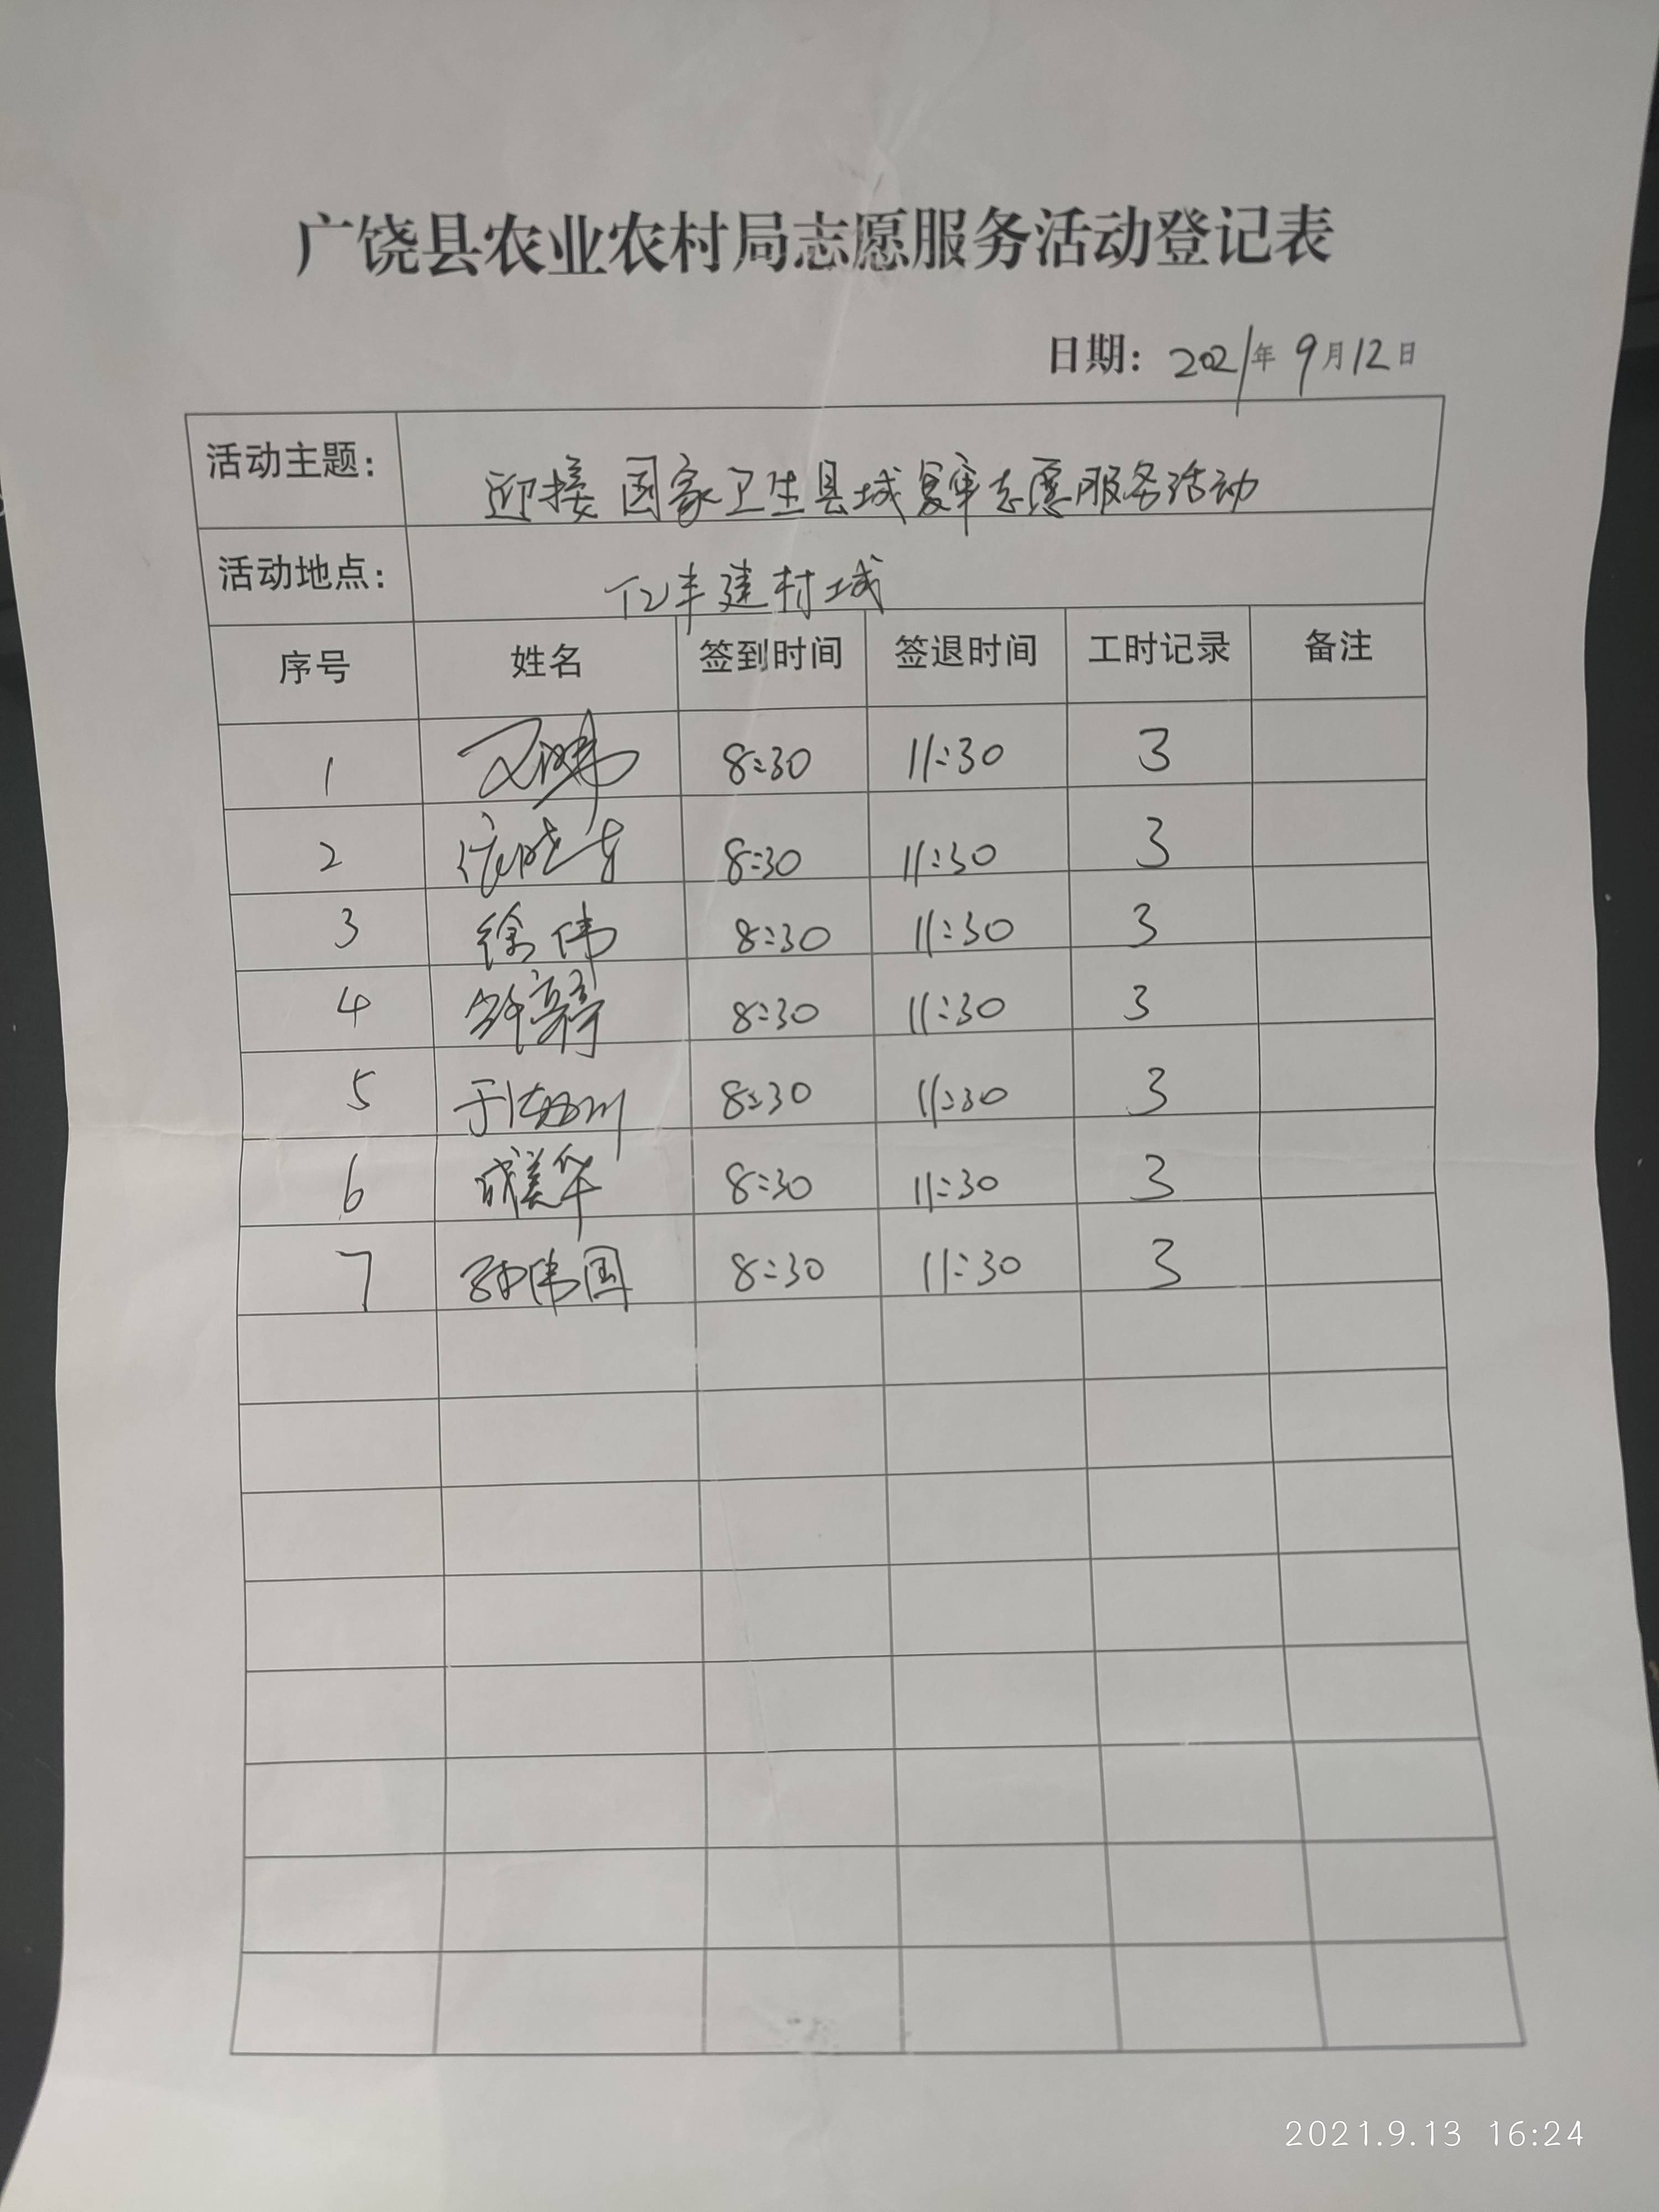 广饶县农业农村局志愿服务活动登记表
日期：2021年9月12日
活动主题： 迎接国家卫生县城复审志愿服务活动
活动地点： 亿丰建材城
序号 姓名 签到时间 签退时间 工时记录 备注
1 8:30 11:30 3
2 8:30 11:30 3
3 徐伟 8:30 11:30 3
4 8:30 11:30 3
5 于 8:30 11:30 3
6 成美华 8:30 11:30 3
7 孙伟国 8:30 11:30 3
2021.9.13 16:24